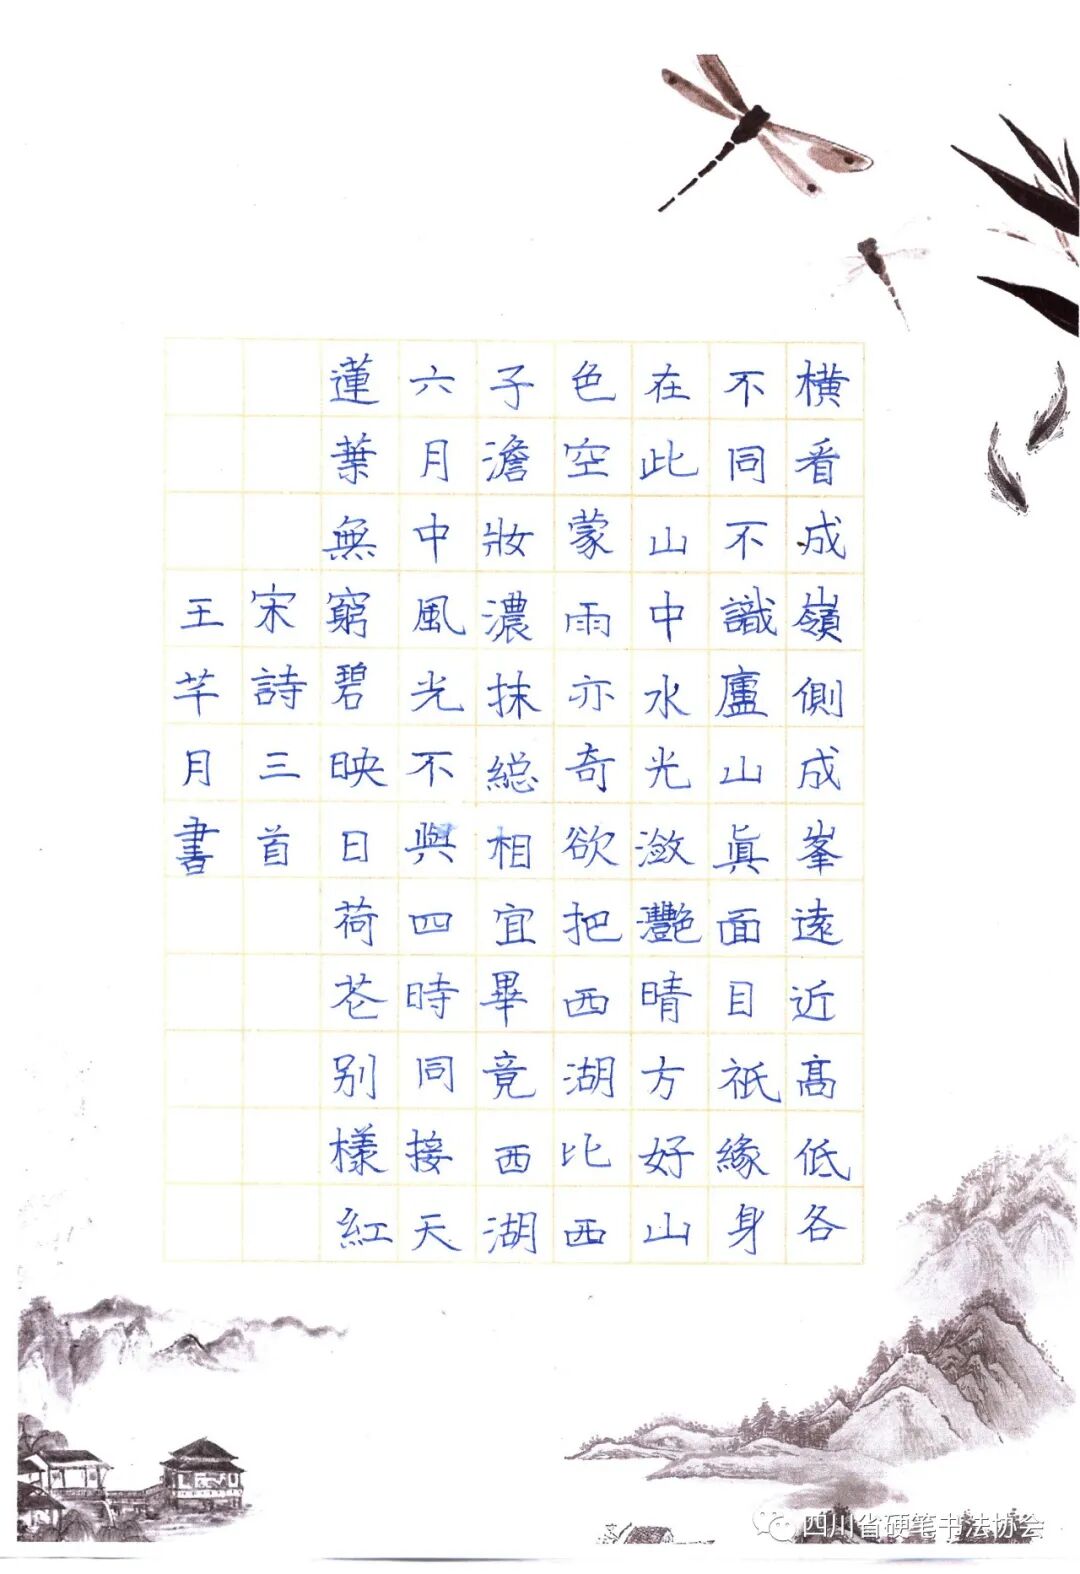 橫看成嶺側成峯遠近高低各
不同不識廬山眞面目祇緣身
在此山中水光瀲灩晴方好山
色空蒙雨亦奇欲把西湖比西
子澹妝濃抹總相宜畢竟西湖
六月中風光不與四時同接天
蓮葉無窮碧映日荷花别樣紅
宋詩三首
王芊月書
四川省硬笔书法协会